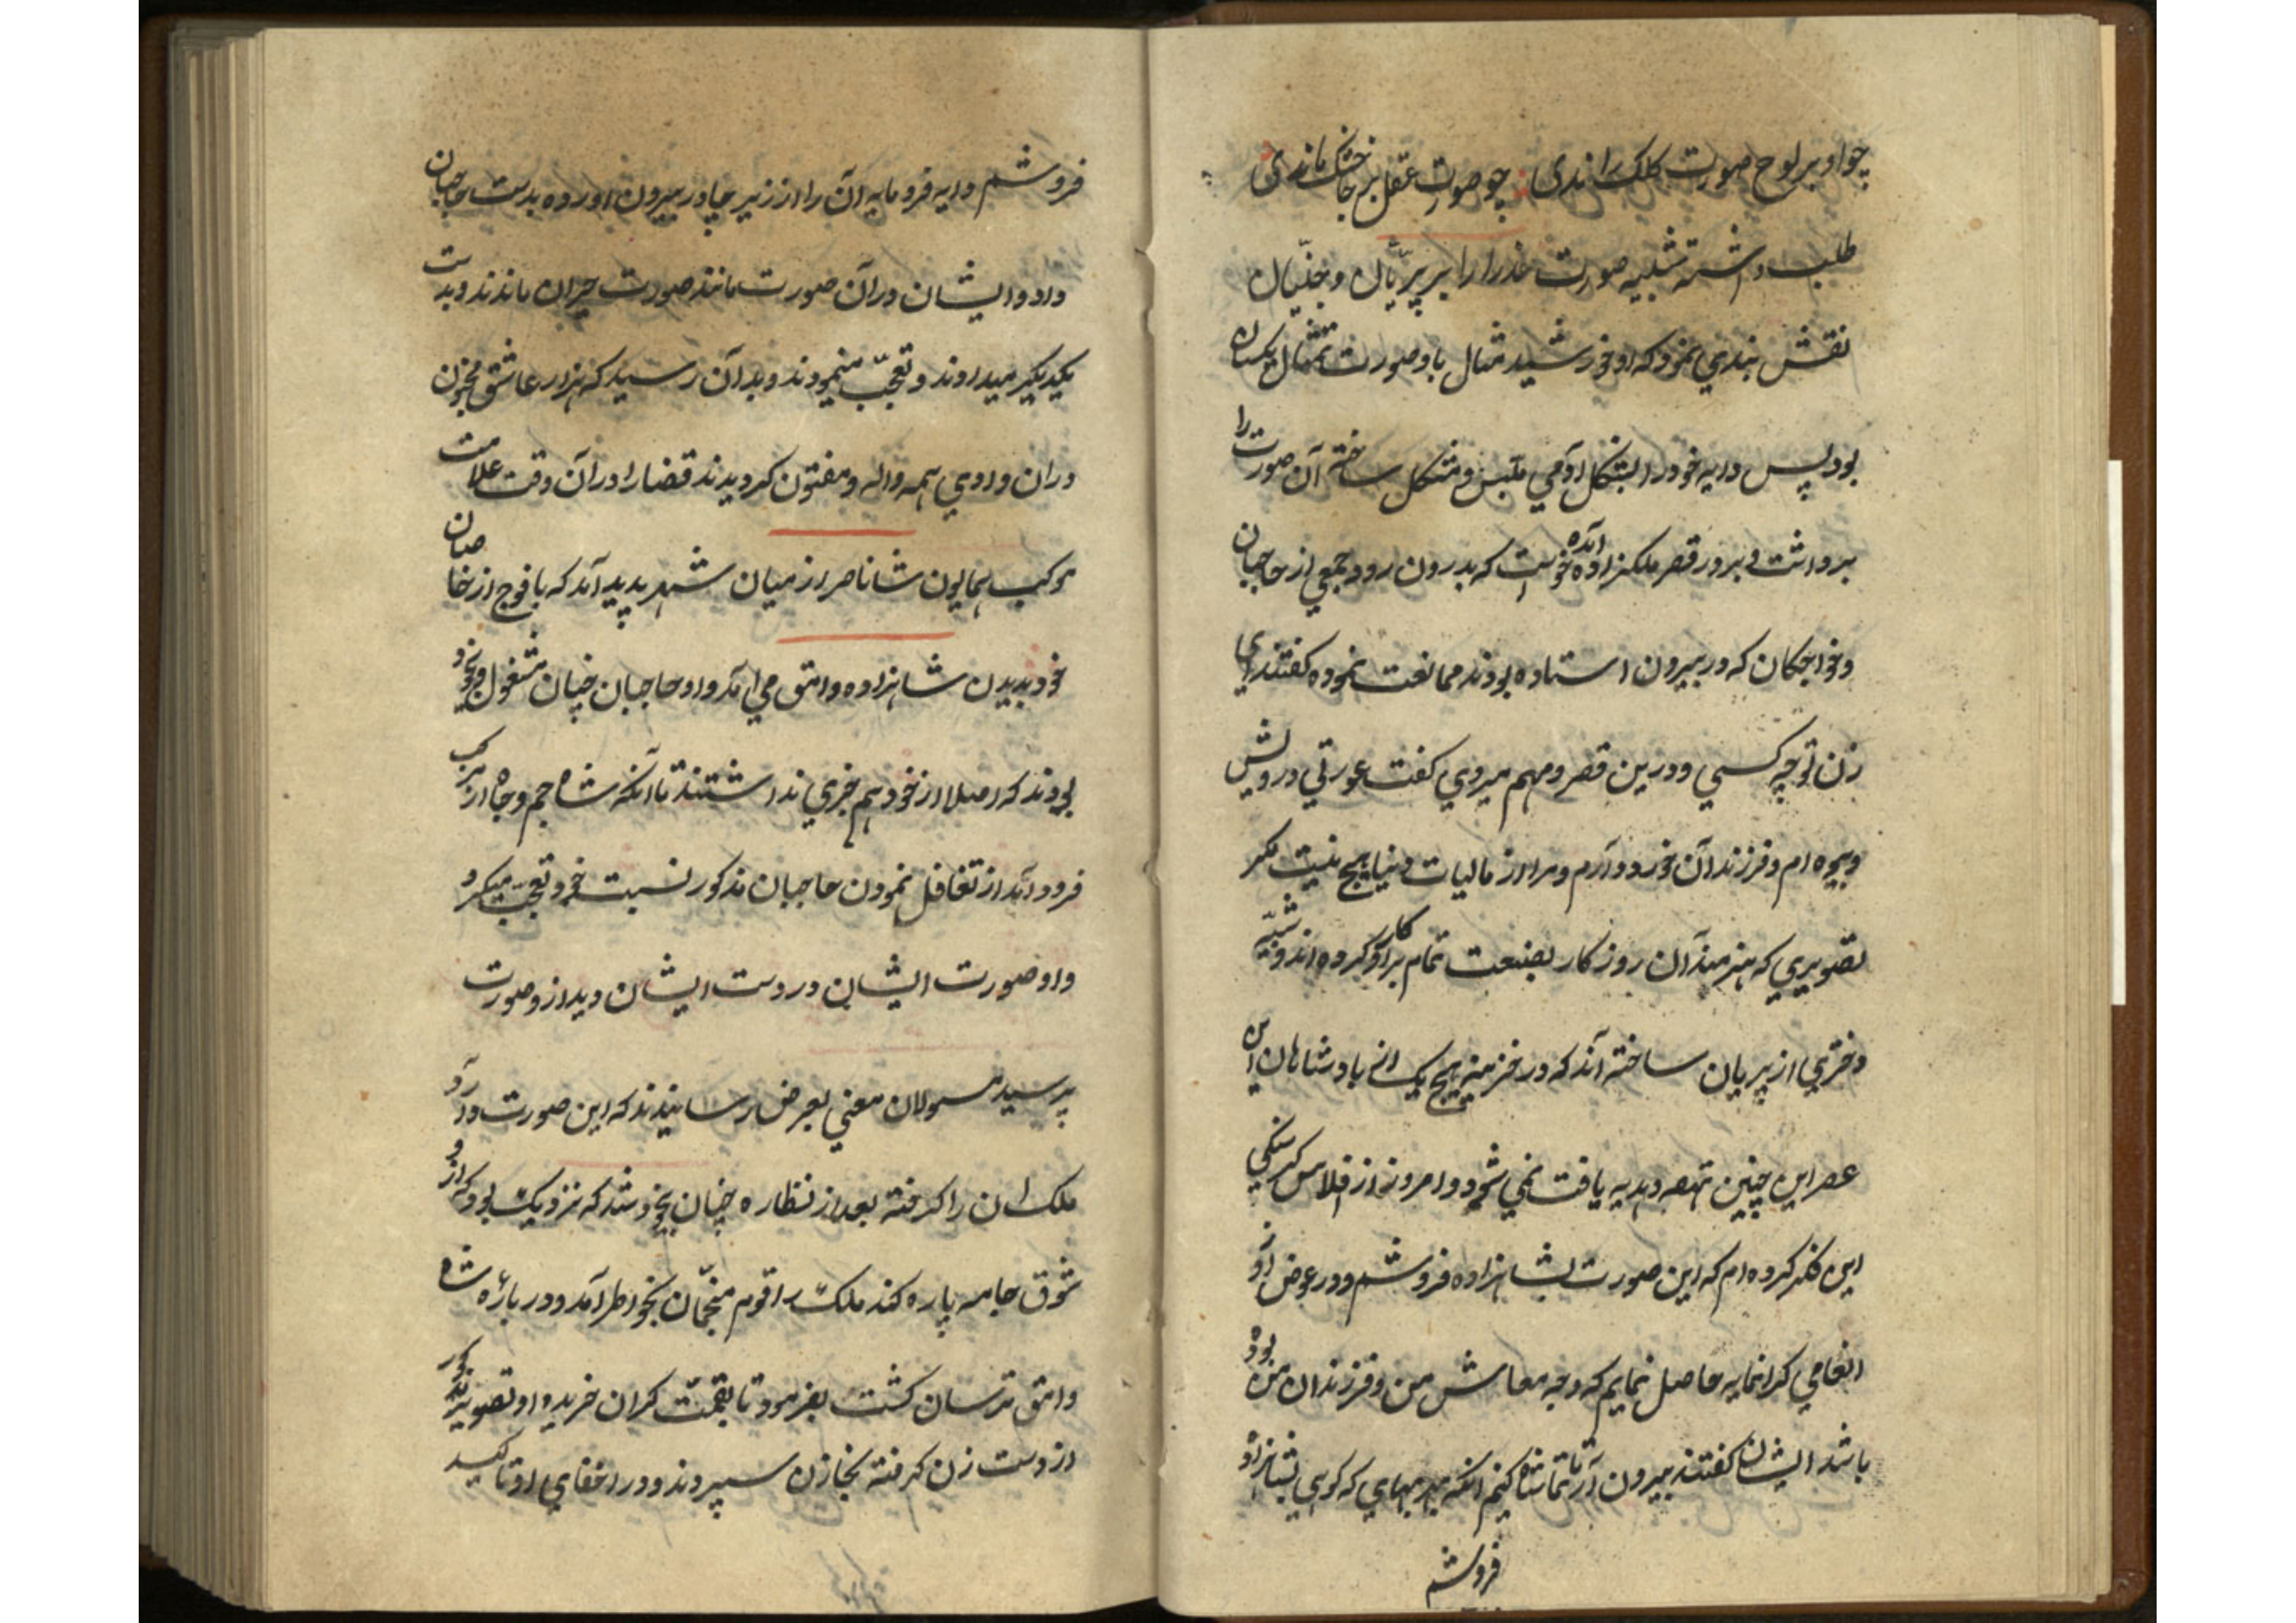 چو او بر لوح صورت کلک راندی چو صورت عقل بر جا خشک ماندی
طلب داشته شبیه صورت عذرا را بر پریان و جنیان
نقش بندی نمود که او خورشید مثال با و صورت تمثال یکسان
بود پس دایه خود را بشکل آدمی ملبس و متشکل ساخته آن صورت را
برداشت و بر در قصر ملکزاده آمده خواست که بدرون رود جمعی از حاجبان
و خواجکان که در بیرون استاده بودند ممانعت نموده کفتند ای
زن تو چه کسی و درین قصر و مهم میروی کفت عورتی درویش
و بیوه ام و فرزندان خورد دارم و مرا از مالیات دنیا هیچ نیست مکر
تصویری که هنرمندان روزکار بصنعت تمام بر او کار کرده اند و شبیه
دختری از پریان ساخته اند که در خزینه هیچ یک از پادشاهان این
عصر این چنین تحفه و هدیه یافت نمی شود و امروز از افلاس کرسنکی
این فکر کرده ام که این صورت بشاهزاده فروشم و در عوض او
انعامی کرانمایه حاصل نمایم که وجه معاش من و فرزندان من بوده
باشد ایشان کفتند بیرون آر تا تماشا کنیم آنکه بهر بهای که کوی بشاهزاده
فروشم
فروشم دایه فرومایه آن را از زیر چادر بیرون اورده بدست حاجبان
داد و ایشان در آن صورت مانند صورت حیران ماندند و بدست
یکدیکر میدادند و تعجب مینمودند و بدان رسید که هزار عاشق مجنون
در ان وادی همه واله و مفتون کردیدند قضا را در آن وقت علامت
موکب همایون شاناصر از میان شهر پدید آمد که با فوج از خاصان
خود بدیدن شاهزاده وامق می آمد و او حاجبان چنان مشغول و بیخود
بودند که اصلا از خود هم خبری نداشتند تا آنکه شاه جم و جاه از مرکب
فرود آمد از تغافل نمودن حاجبان مذکور نسبت خود تعجب میکرد
و او صورت ایشان در دست ایشان دید از و صورت
پرسید مسولان معنی بعرض رسانیدند که این صورت
ملک ان را کرفته بعد از نظاره چنان بیخود شد که نزدیک بود که از و
شوق جامه پاره کند ملک را قوم منجمان بخواطر آمد و در باره شاه
وامق ترسان کشت بفرمود تا بقیمت کران خریده او تصویر مذکور
از دست زن کرفته بخازن سپردند و در اخفای او تاکید